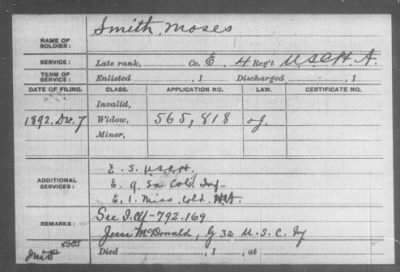 NAME OF SOLDIER: Smith, Moses
SERVICE: Late rank, Co. E, 4 Reg't U.S.C.H.A.
TERM OF SERVICE: Enlisted , 1 Discharged , 1
DATE OF FILING. CLASS. APPLICATION NO. LAW. CERTIFICATE NO.
Invalid,
1892, Dec. 7 Widow, 565,818
Minor,
E. 5. U.S.C.H.
ADDITIONAL SERVICES: E. 9. La Cold Inf
E. 1. Miss. Cold. H.A.
REMARKS: See I.O. 792.169
Jesse McDonald, G 32 U.S.C. Iy
Died , 1 , at